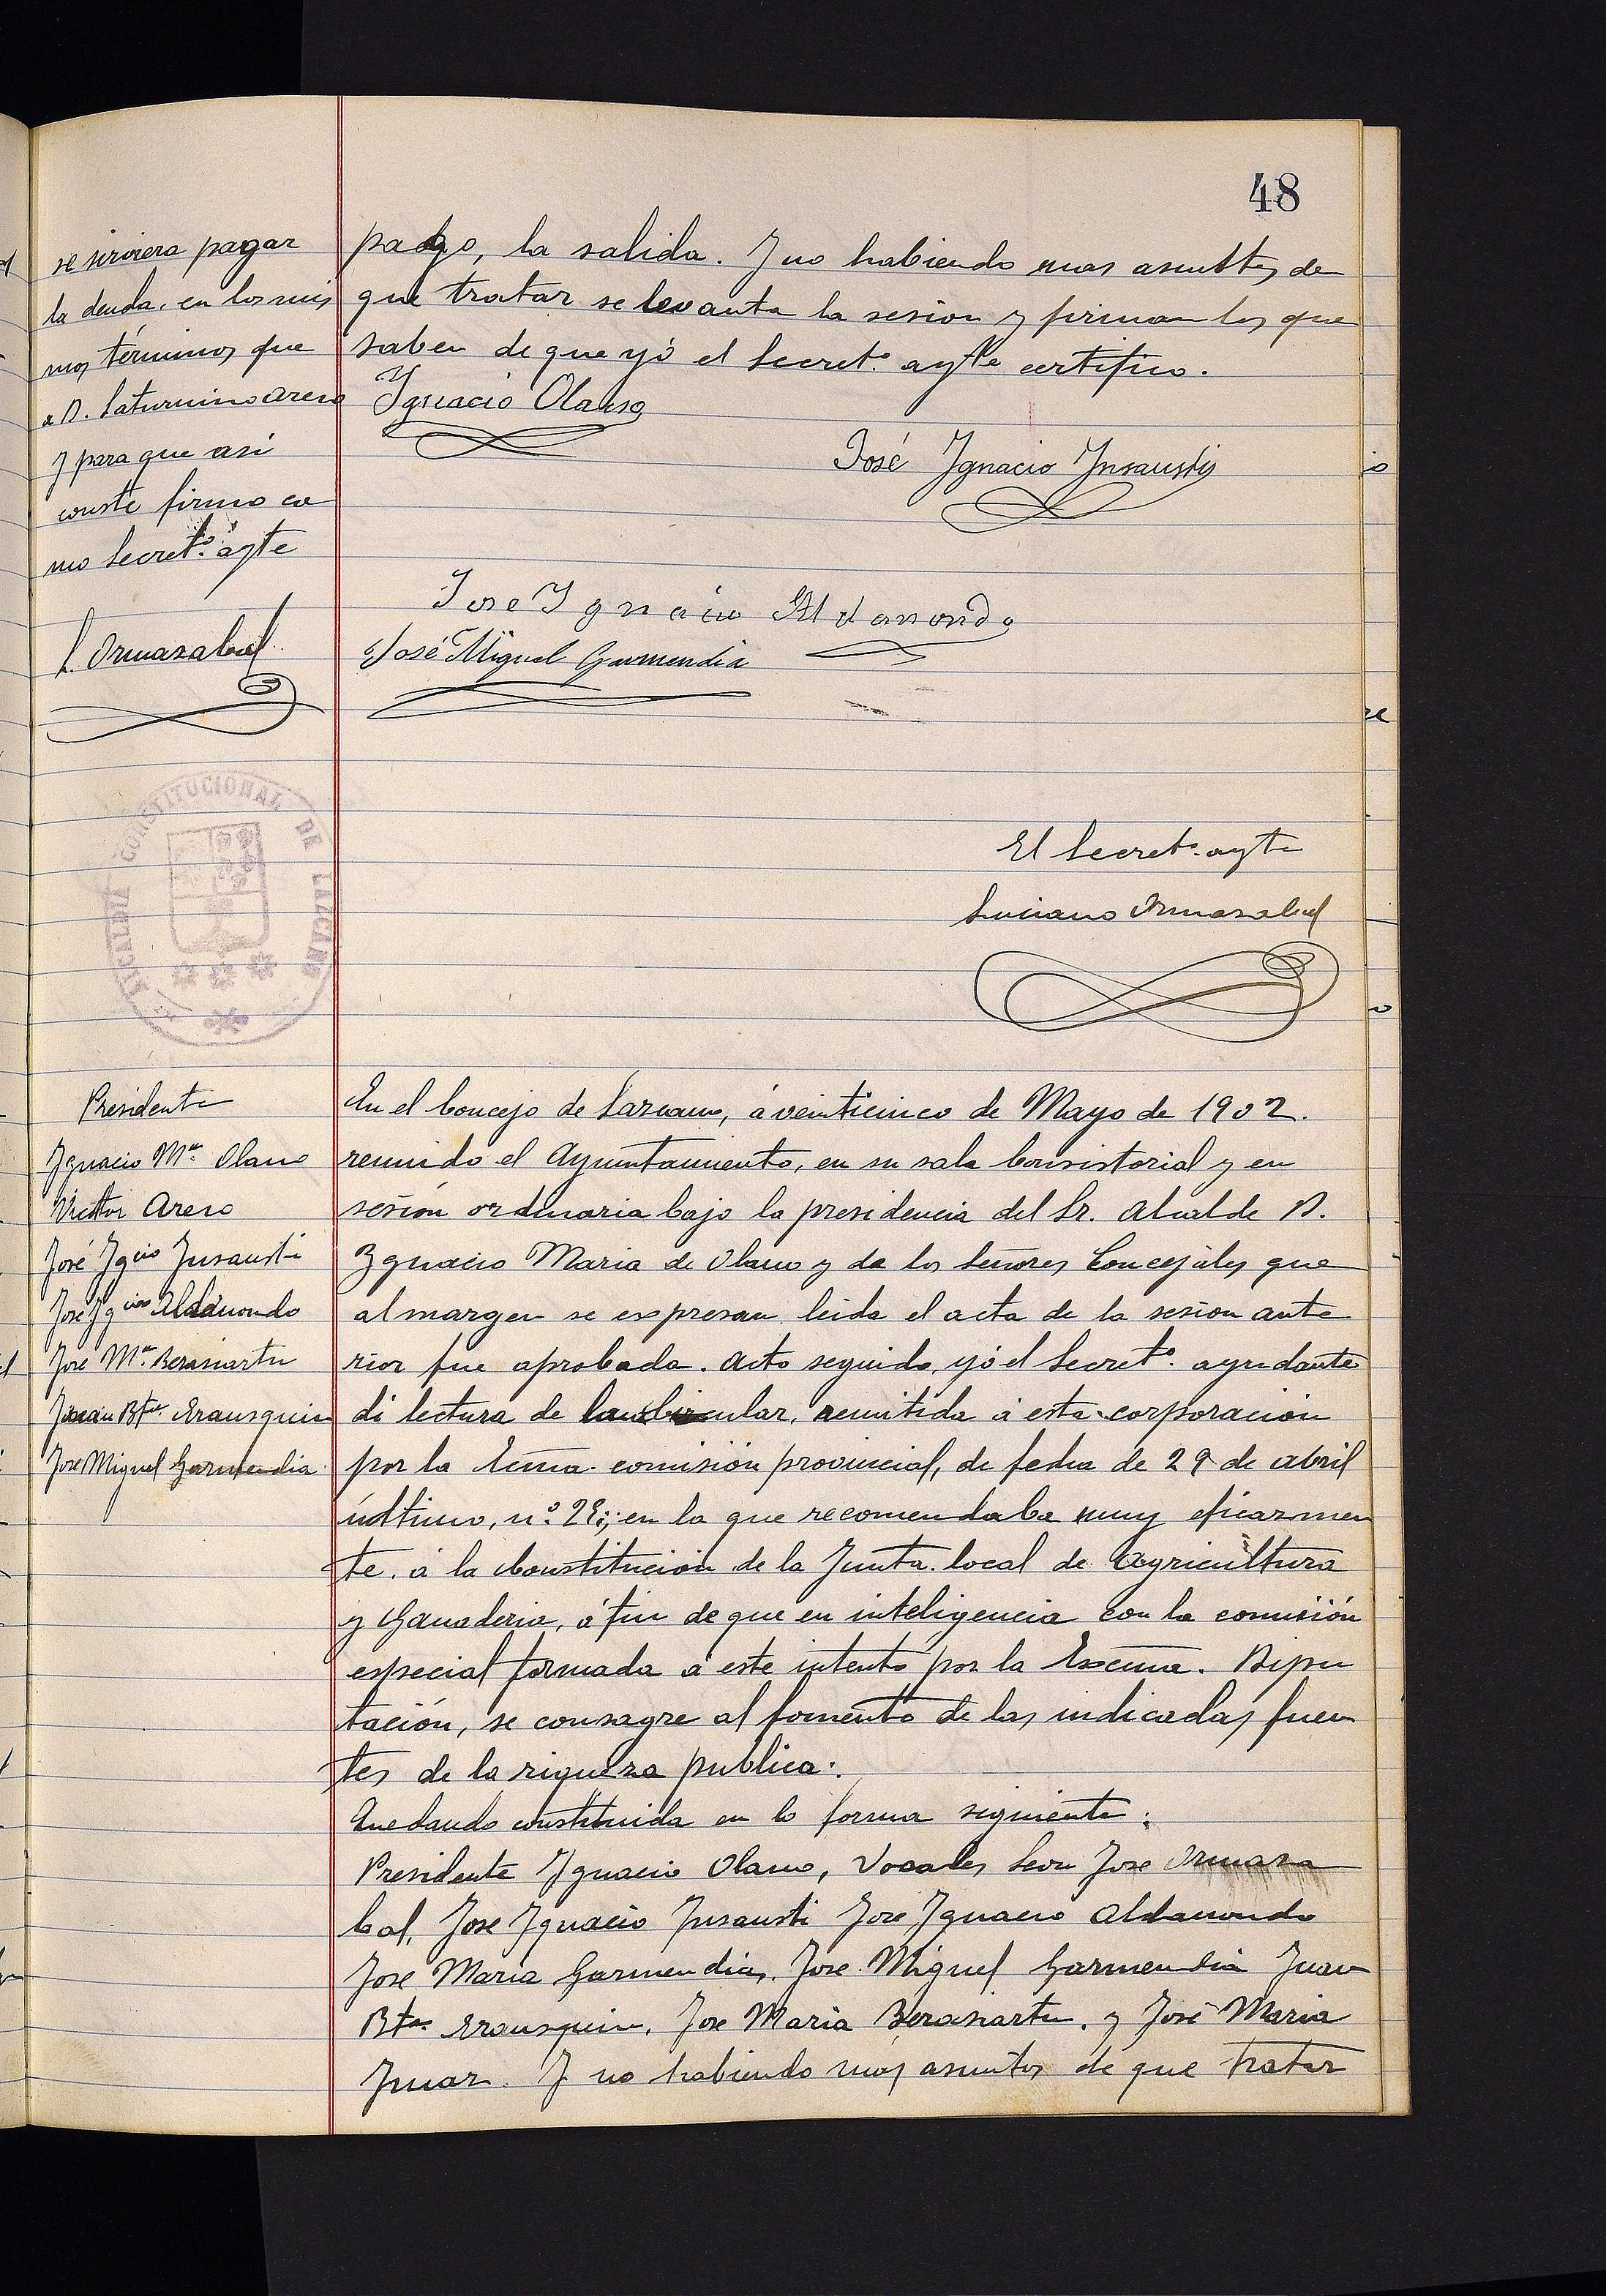 48
se sirviera pagar
la deuda, en los mis
mos términos que
a D. Saturnino Areso
y para que asi
conste firmo co
mo Secret.º ayte
L. Ormazabal
pago, la salida. Y no habiendo mas asuntos de
que tratar se levanta la sesion y firman los que
saben de que yó el Secret.º ayte certifico.
Ygnacio Olano
José Ygnacio Ynsausti
Jose Ygnacio Aldanondo
José Miguel Garmendia
ALCALDIA CONSTITUCIONAL DE LAZCANO
El Secret.º ayte
Luciano Ormazabal
Presidente
Ygnacio Mª Olano
Victor Areso
José Ygcio Ynsausti
José Ygcio Aldanondo
José Mª Berasiartu
Juan Btta Erausquin
José Miguel Garmendia
En el Concejo de Lazcano, á veinticinco de Mayo de 1902.
reunido el Ayuntamiento, en su sala Consistorial y en
sesion ordinaria bajo la presidencia del Sr. Alcalde D.
Ygnacio Maria de Olano y de los Señores Concejales que
al margen se expresan leida el acta de la sesion ante
rior fue aprobada. Acto seguido, yó el Secret.º ayudante
di lectura de la circular, remitida á esta corporación
por la Exma. comisión provincial, de fecha de 29 de abril
último, n.º en la que recomendaba muy eficazmen
te. á la Constitución de la Junta local de Agricultura
y Ganaderia, á fin de que en inteligencia con la comisión
especial formada á este intento por la Excma. Dipu
tación, se consagre al fomento de las indicadas fuen
tes de la riqueza publica.
Quedando constituida en la forma siguiente:
Presidente Ygnacio Olano, Vocales Leon Jose Ormaza
bal, Jose Ygnacio Ynsausti Jose Ygnacio Aldanondo
Jose Maria Garmendia, Jose Miguel Garmendia Juan
Btta Erausquin, Jose Maria Berasiartu, y José Maria
Y no habiendo mas asuntos de que tratar